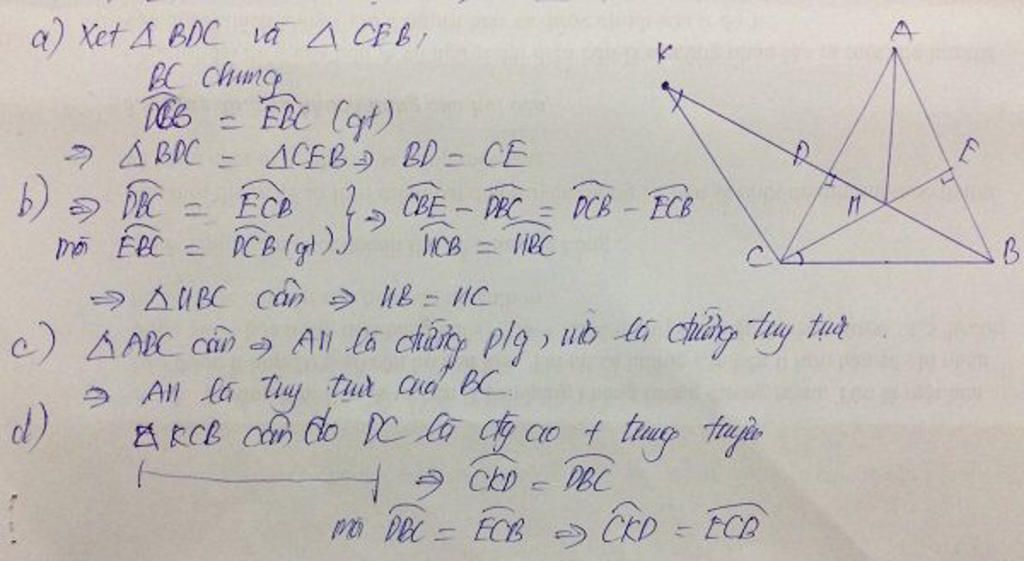 a) Xét Δ BDC và Δ CEB,
BC chung
DCB = EBC (gt)
⇒ Δ BDC = Δ CEB ⇒ BD = CE
b) ⇒ DBC = ECB } ⇒ CBE - DBC = DCB - ECB
mà EBC = DCB (gt) HCB = HBC
⇒ Δ HBC cân ⇒ HB = HC
c) Δ ABC cân ⇒ AH là đường p/g, mà là đường tuy trực
⇒ AH là tuy trực của BC
d) Δ KCB cân do DC là đg cao + trung tuyến
⇒ CKD = DBC
mà DBC = ECB ⇒ CKD = ECB
A
K
D
E
H
C
B